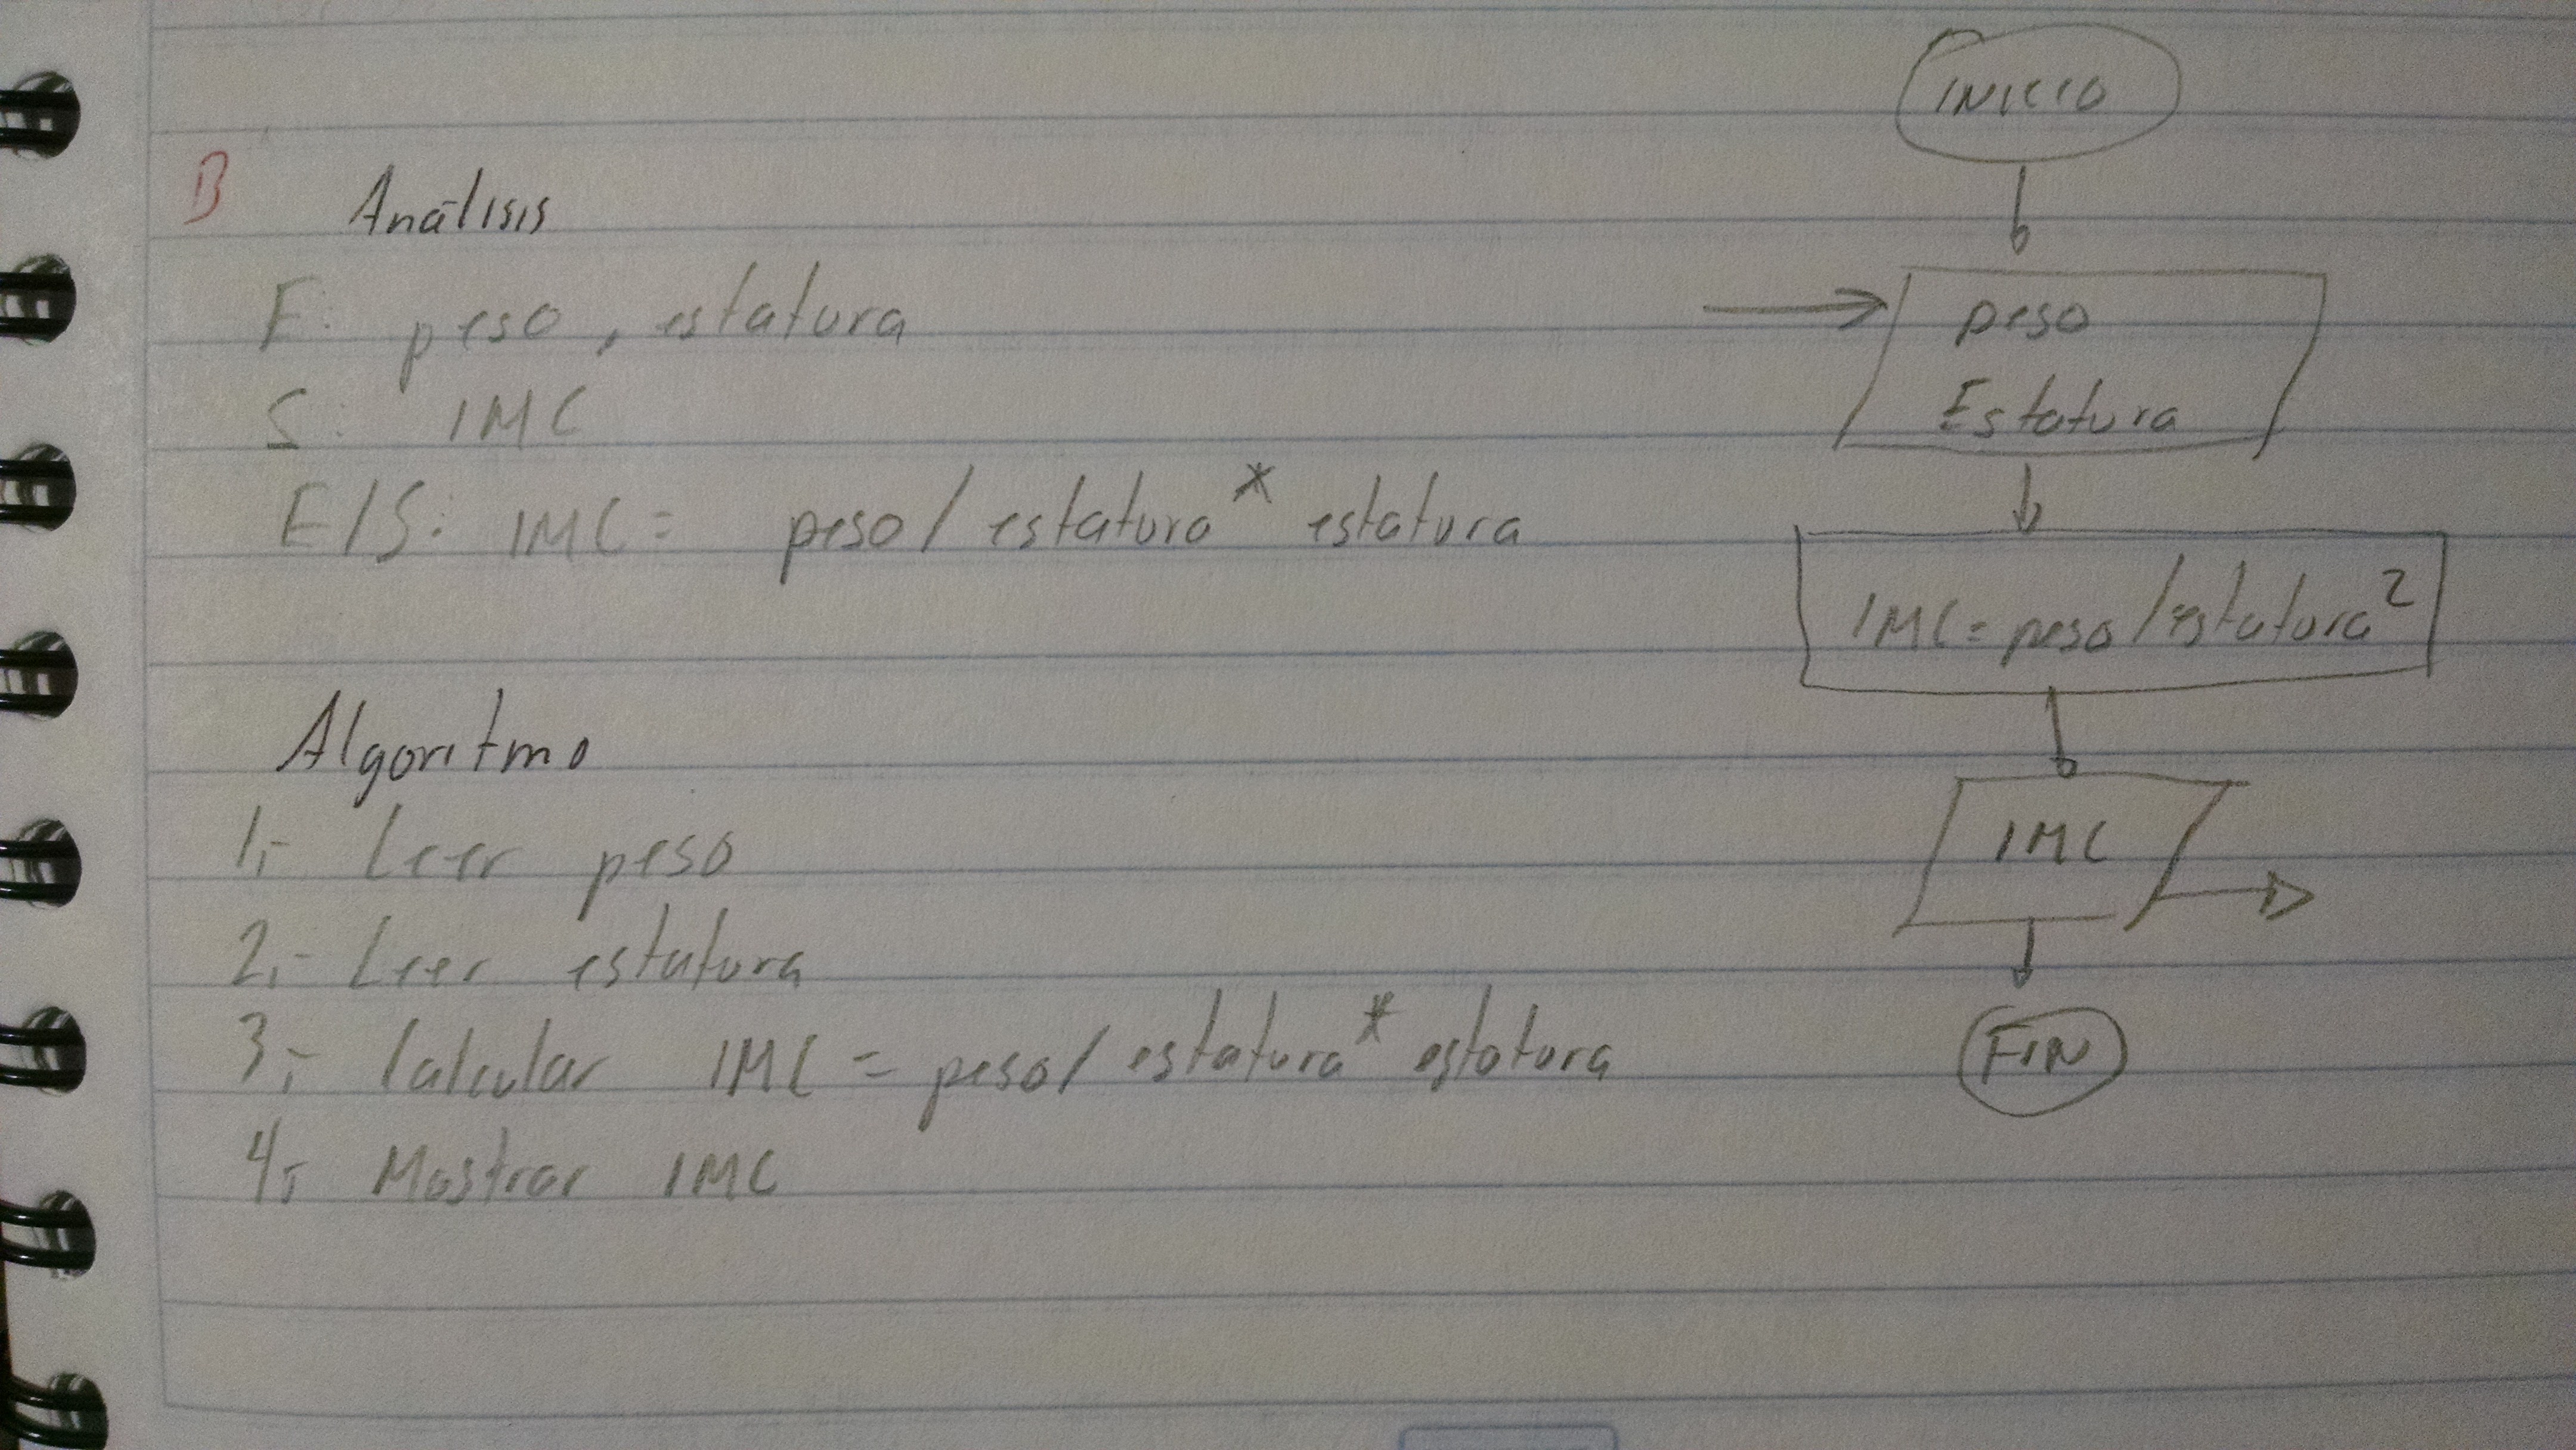 B Análisis
E: peso, estatura
S: IMC
E/S: IMC = peso/ estatura * estatura
Algoritmo
1.- Leer peso
2.- Leer estatura
3.- Calcular IMC = peso/ estatura * estatura
4.- Mostrar IMC
INICIO
peso
Estatura
IMC = peso/estatura²
IMC
FIN